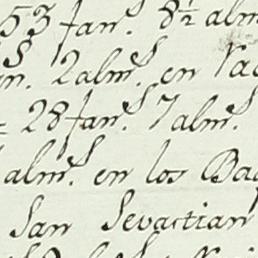 53 Jan.s 8½ alm
n. 2 alm.s en Va
= 28 Jan.s 7 alm.s
alm.s en los Ba
San Sevastian